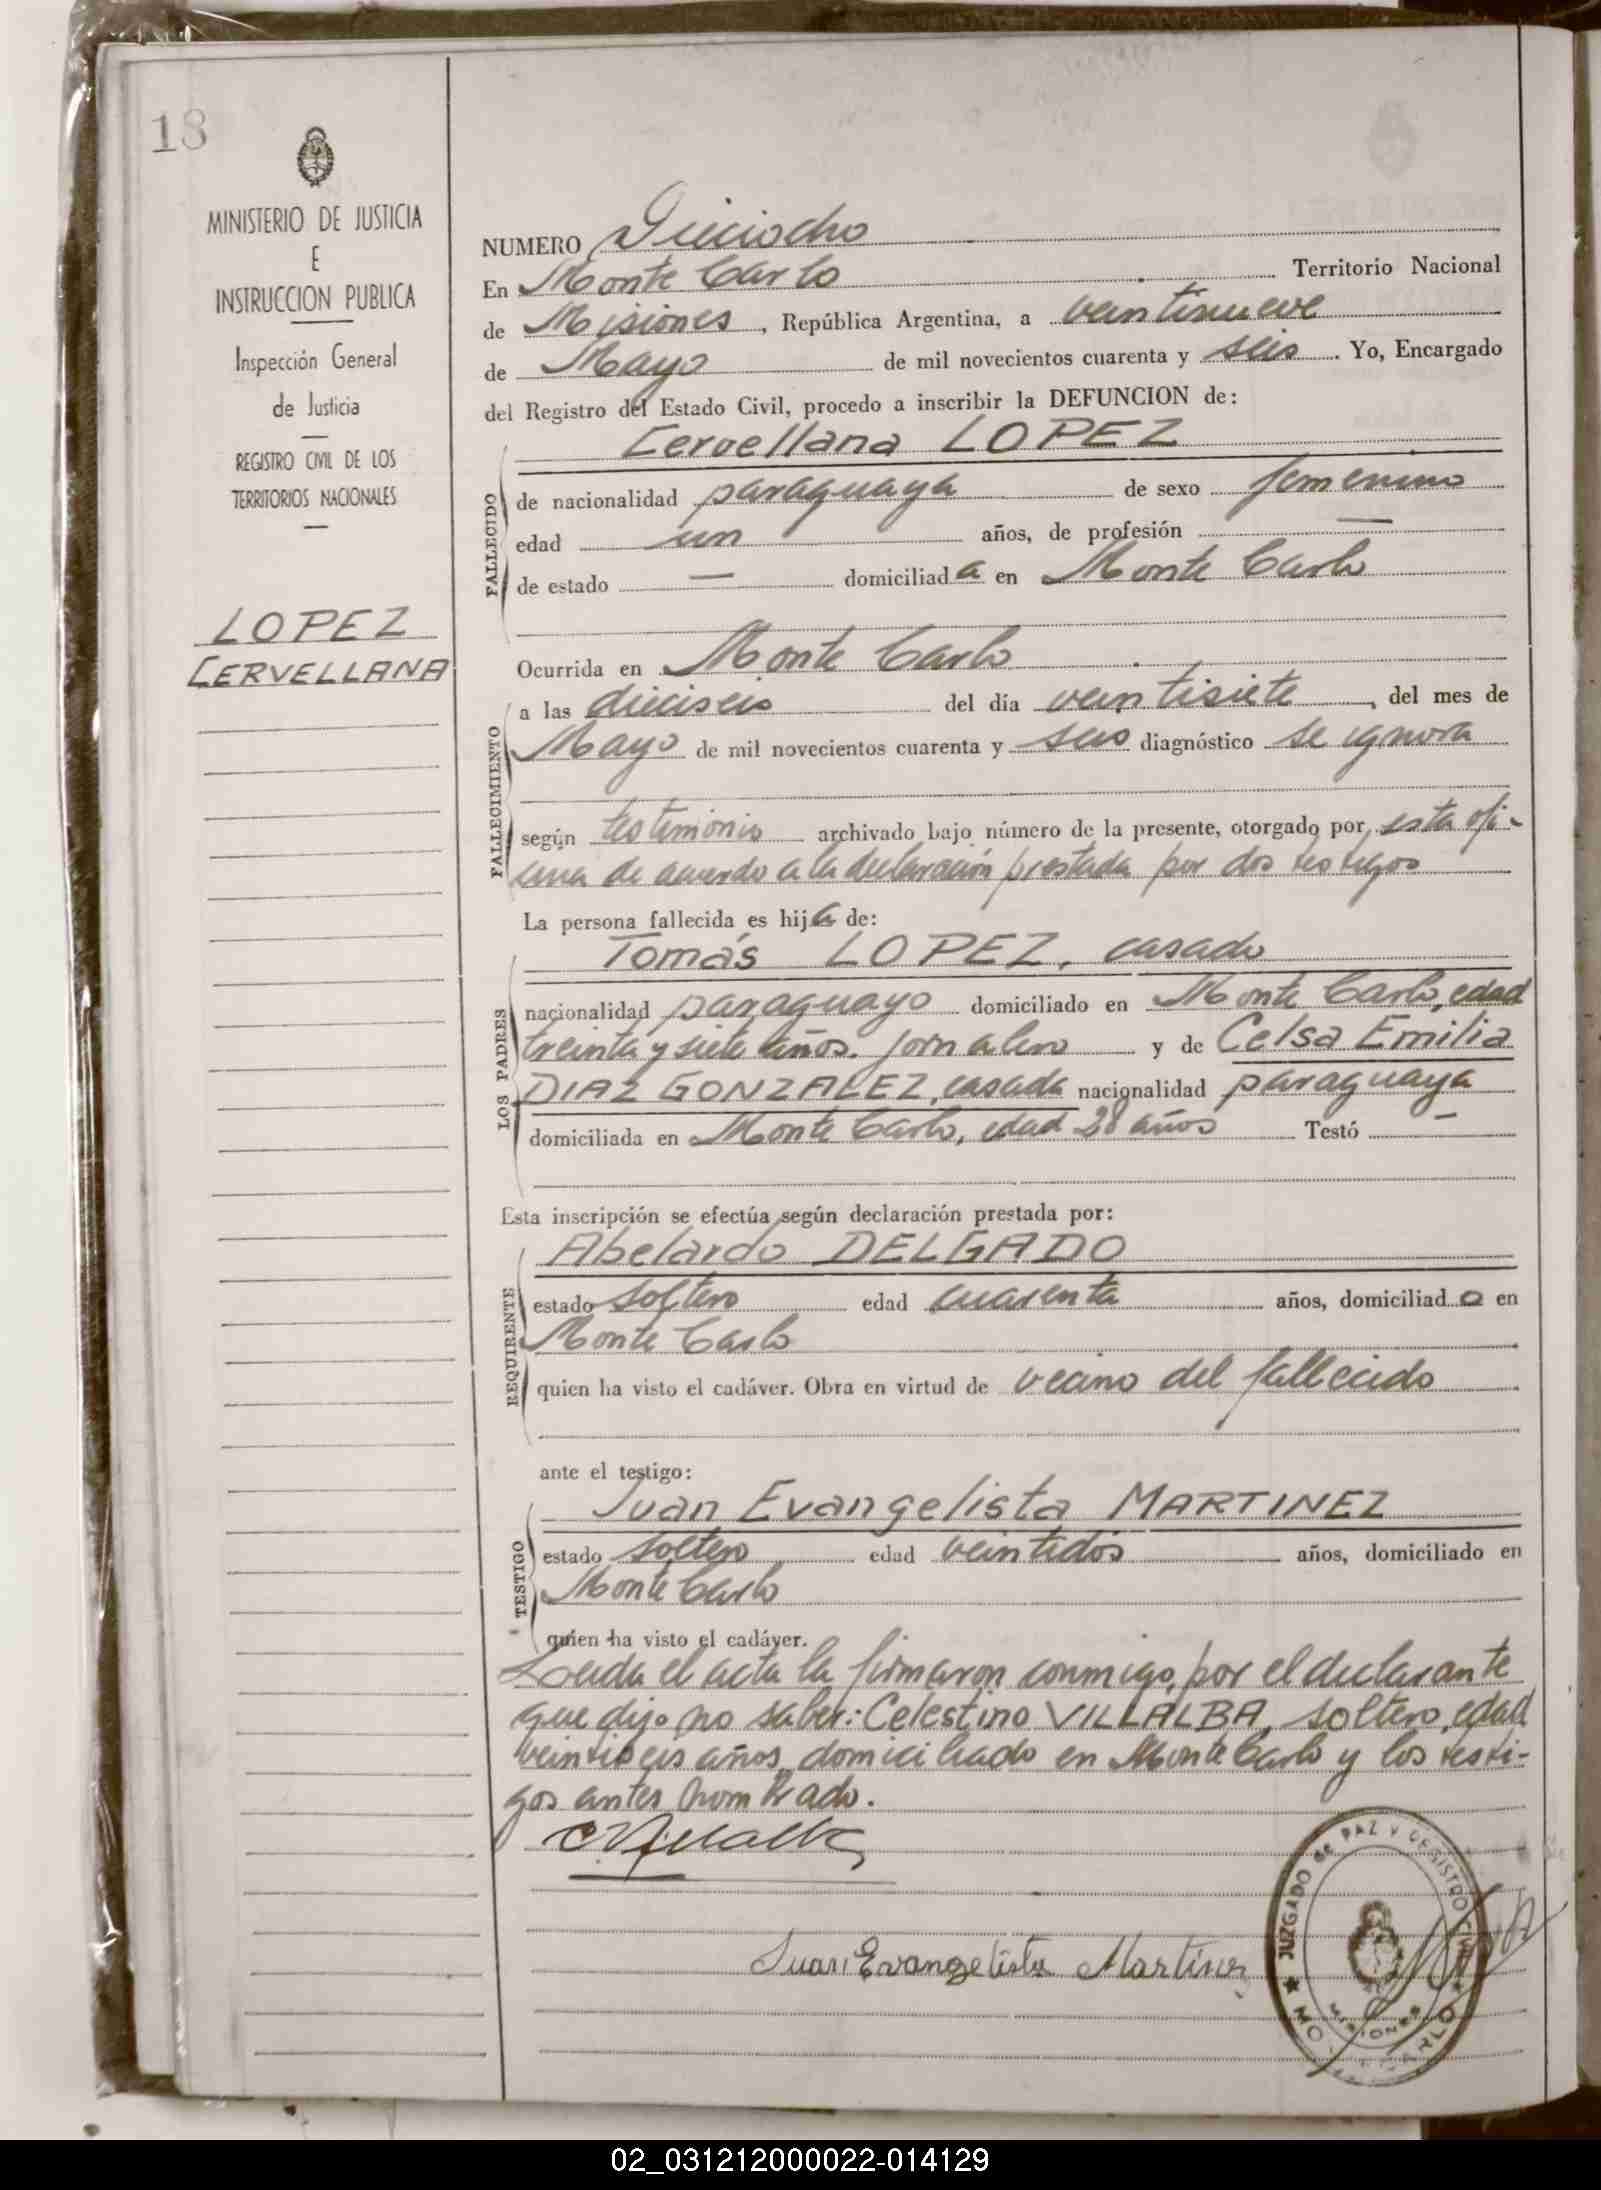 18
MINISTERIO DE JUSTICIA
E
INSTRUCCION PUBLICA
Inspección General
de Justicia
REGISTRO CIVIL DE LOS
TERRITORIOS NACIONALES
LOPEZ
CERVELLANA
NUMERO Dieciocho
En Monte Carlo Territorio Nacional
de Misiones, República Argentina, a veintinueve
de Mayo de mil novecientos cuarenta y seis. Yo, Encargado
del Registro del Estado Civil, procedo a inscribir la DEFUNCION de:
Cervellana LOPEZ
FALLECIDO
de nacionalidad paraguaya de sexo femenino
edad un años, de profesión —
de estado — domiciliada en Monte Carlo
Ocurrida en Monte Carlo
FALLECIMIENTO
a las dieciseis del día veintisiete, del mes de
Mayo de mil novecientos cuarenta y seis diagnóstico se ignora
según testimonio archivado bajo número de la presente, otorgado por esta ofi-
cina de acuerdo a la declaración prestada por dos testigos
La persona fallecida es hija de:
LOS PADRES
Tomás LOPEZ, casado
nacionalidad paraguayo domiciliado en Monte Carlo, edad
treinta y siete años. jornalero y de Celsa Emilia
DIAZ GONZALEZ, casada nacionalidad paraguaya
domiciliada en Monte Carlo, edad 28 años Testó —
Esta inscripción se efectúa según declaración prestada por:
REQUIRENTE
Abelardo DELGADO
estado soltero edad cuarenta años, domiciliado en
Monte Carlo
quien ha visto el cadáver. Obra en virtud de vecino del fallecido
ante el testigo:
TESTIGO
Juan Evangelista MARTINEZ
estado soltero edad veintidós años, domiciliado en
Monte Carlo
quien ha visto el cadáver.
Leida el acta la firmaron conmigo, por el declarante
que dijo no saber: Celestino VILLALBA, soltero, edad
veintiseis años, domiciliado en Monte Carlo y los testi-
gos antes nombrado.
C Villalba
Juan Evangelista Martinez
JUZGADO de PAZ Y REGISTRO CIVIL
MISIONES
MONTE CARLO
02_031212000022-014129